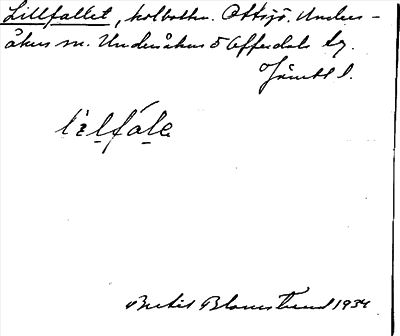 Lillfallet, kolbotten. Ottsjö. Unders-
åkers sn. Undersåkers o Offerdals tg.
Jämtl l.
lìlfála
Bertil Blomstrand 1934